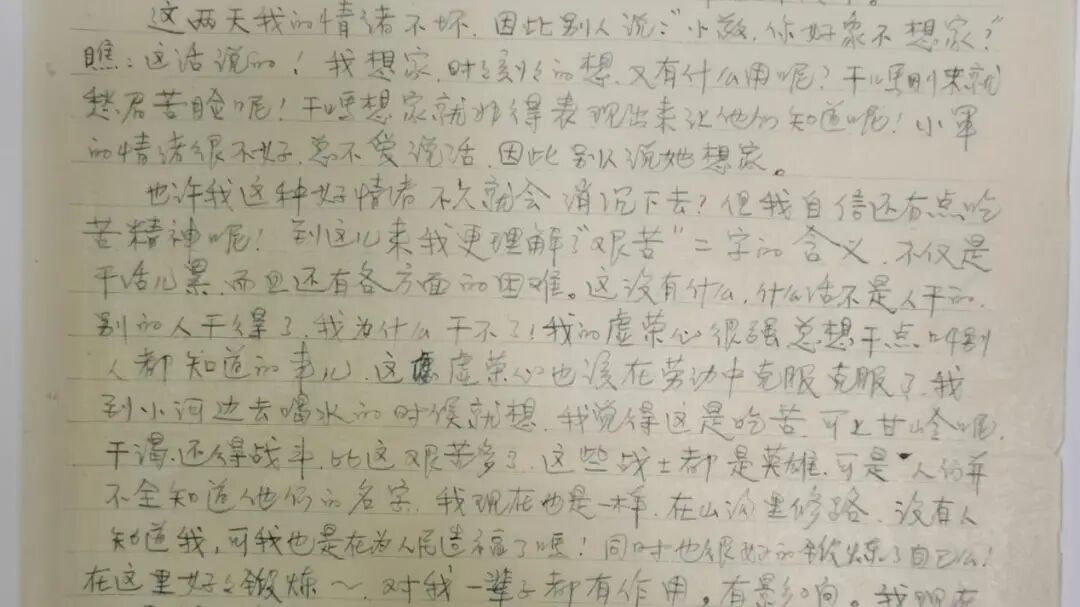 这两天我的情绪不坏,因此别人说:“小敏,你好象不想家?”
瞧:这话说的!我想家,时时刻刻的想,又有什么用呢?干吗刚来就
愁眉苦脸呢!干吗想家就非得表现出来让他们知道呢!小军
的情绪很不好,总不爱说话,因此别人说她想家。
也许我这种好情绪不久就会消沉下去?但我自信还有点吃
苦精神呢!到这儿来我更理解了“艰苦”二字的含义,不仅是
干活儿累,而且还有各方面的困难。这没有什么,什么活不是人干的,
别的人干得了,我为什么干不了!我的虚荣心很强总想干点叫别
人都知道的事儿,这虚荣心也该在劳动中克服克服了,我
到小河边去喝水的时候就想,我觉得这是吃苦,可上甘岭呢,
干渴,还得战斗,比这艰苦多了,这些战士都是英雄,可是人们并
不全知道他们的名字,我现在也是一样,在山沟里修路,没有人
知道我,可我也是在为人民造福了吗!同时也很好的锻炼了自己么!
在这里好好锻炼~,对我一辈子都有作用,有影响。我现在